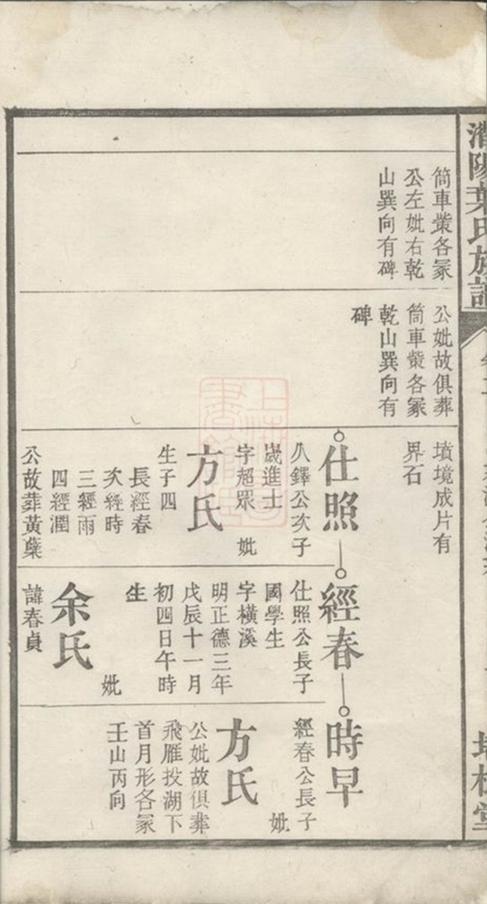 葉氏族譜
筒車塋各冢
公左妣右乾
山巽向有碑
公妣故俱葬
筒車塋各冢
乾山巽向有
碑
墳境成片有
界石
仕照
公鐸公次子
歲進士
字超眾 妣
方氏
生子四
長經春
次經時
三經雨
四經潤
公故葬黃葉
經春
仕照公長子
國學生
字橫溪
明正德三年
戊辰十一月
初四日午時
生 妣
余氏
諱春貞
時早
經春公長子
妣
方氏
公妣故俱葬
飛雁投湖下
首月形各冢
壬山丙向